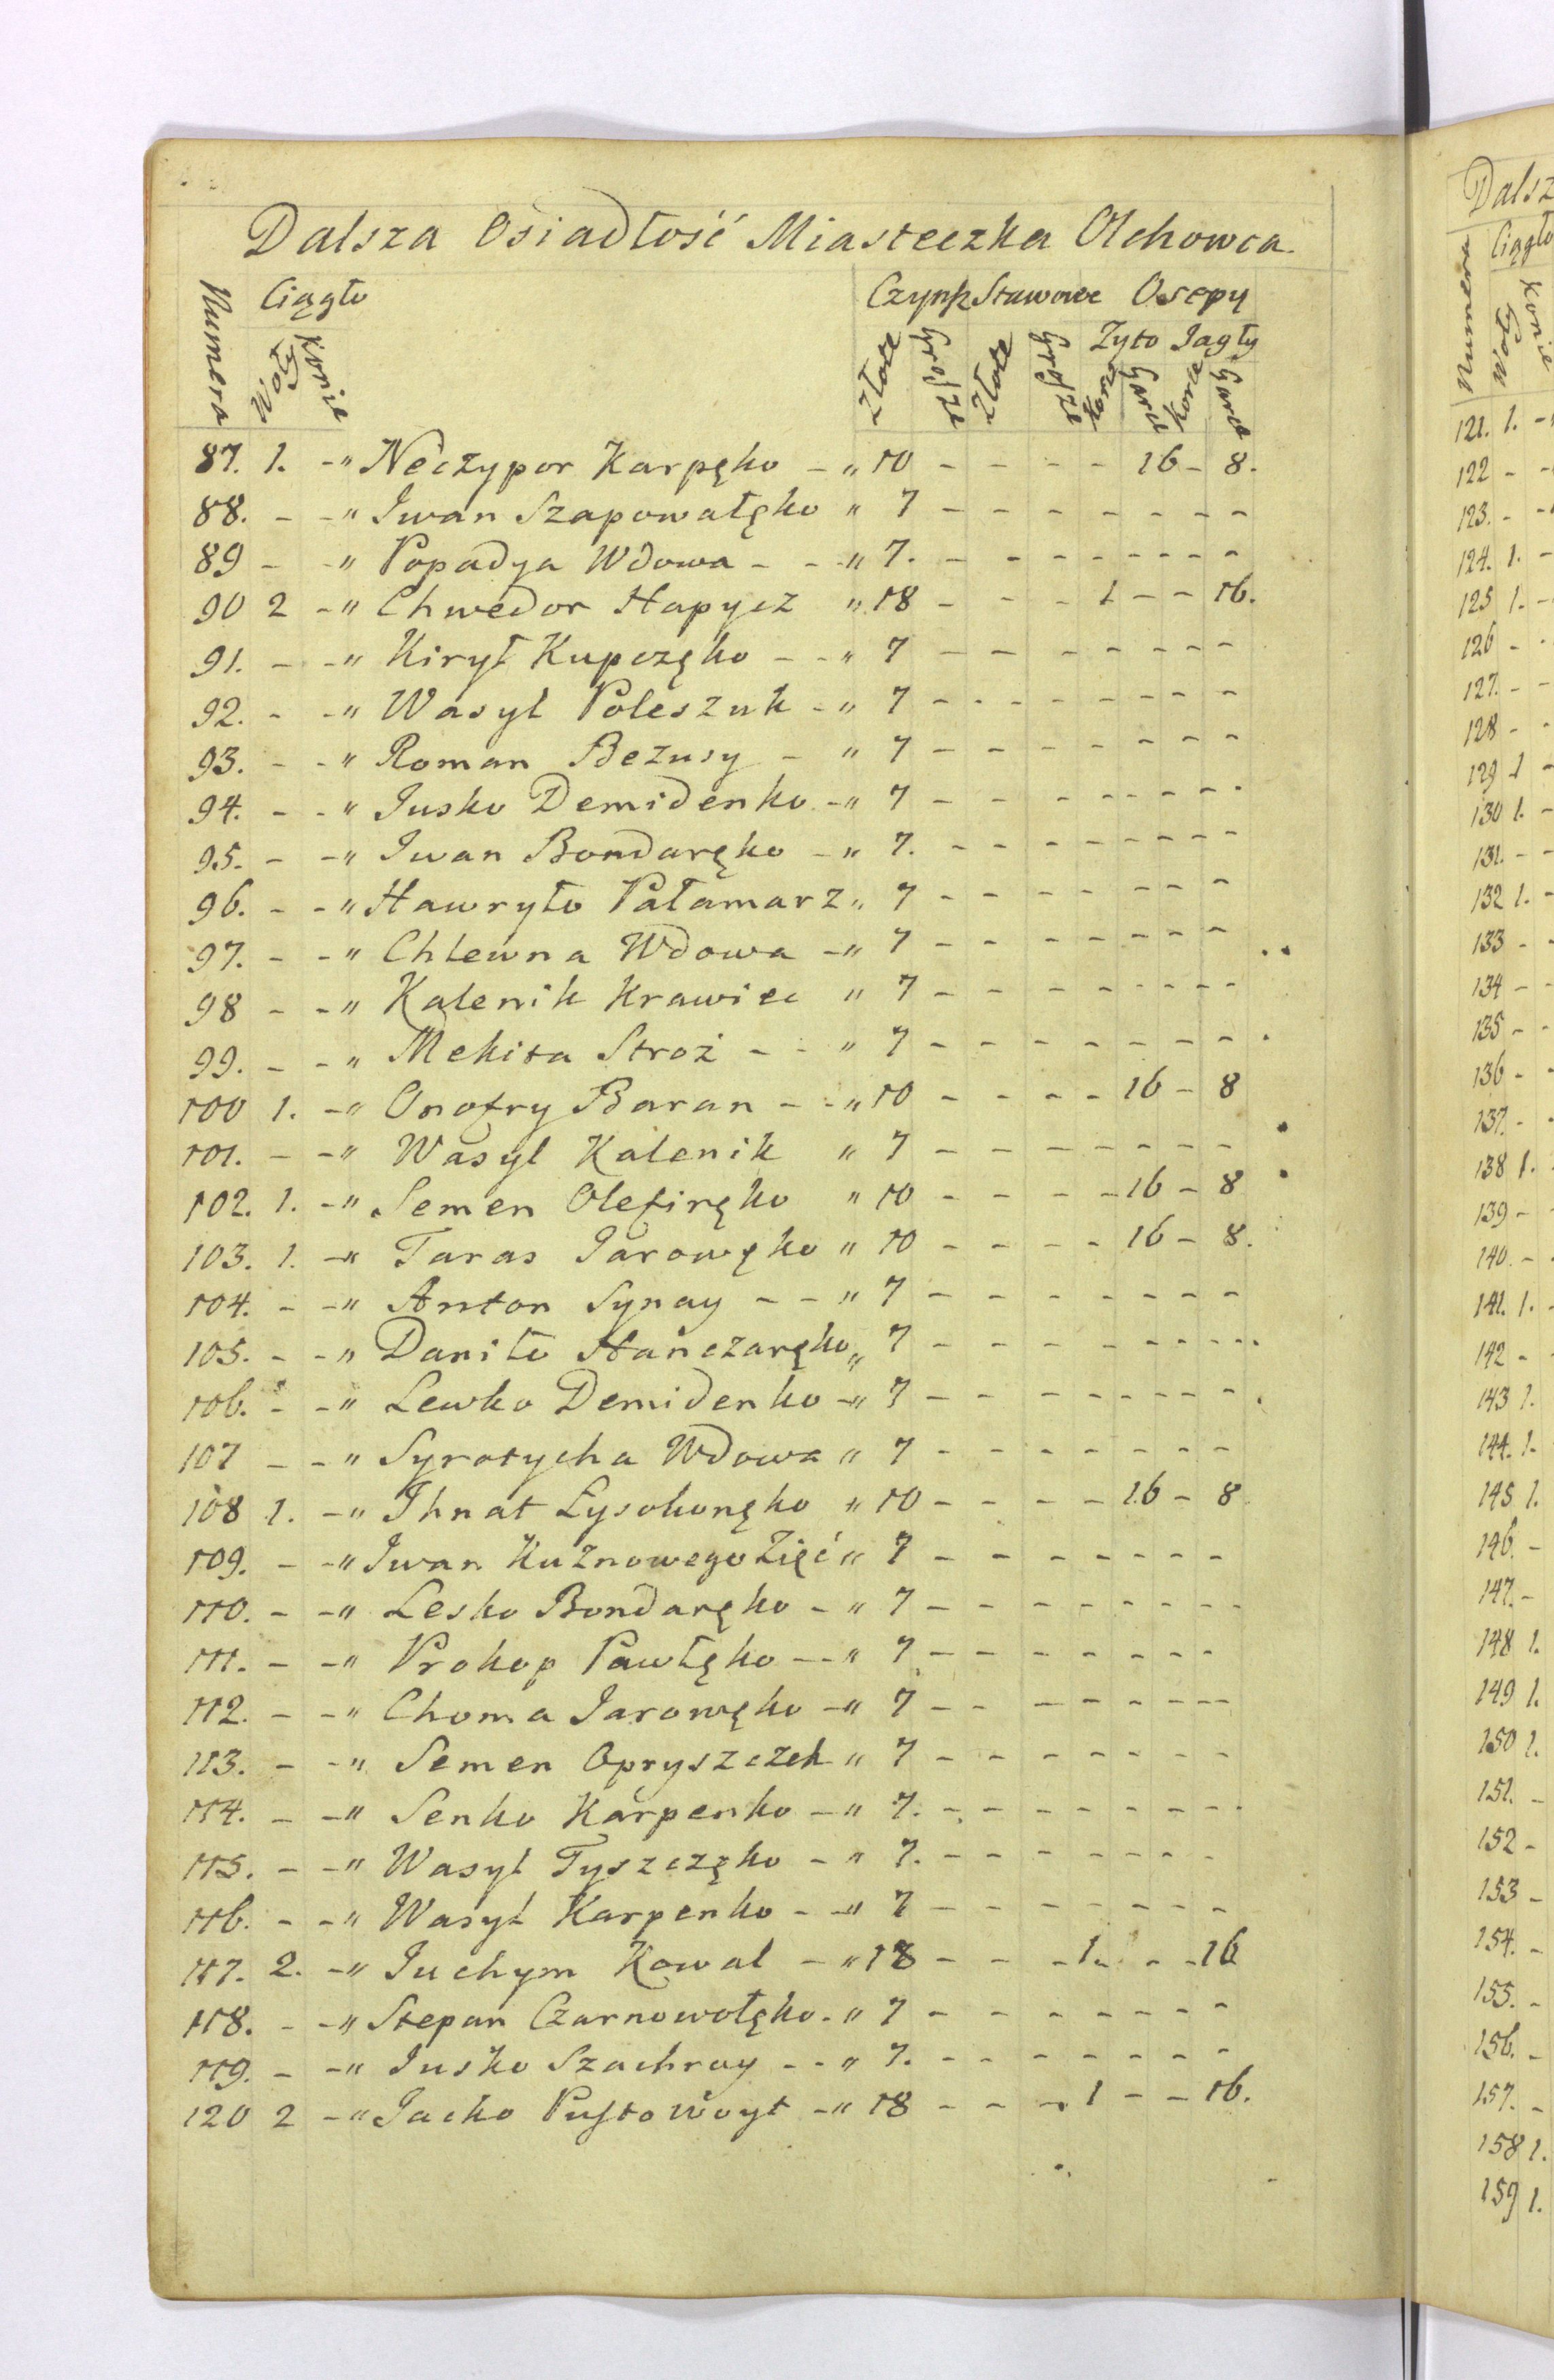 Dalsza Osiadłość Miasteczka Olchowca
Numera Ciągło Czynsz Stawowe Osepy
Woły Konie Złote Grosze Złote Grosze Zyto Jagły
Korce Garce Korce Garce
87. 1. - " Neczypor Karpęko - " 10 - - - - 16 - 8.
88. - - " Jwan Szapowałęko " 7 - - - - - - - -
89 - - " Popadya Wdowa - - " 7. - - - - - - - -
90 2 - " Chwedor Hapycz " 18 - - - 1 - - 16.
91. - - " Kirył Kupczęko - - " 7 - - - - - - - -
92. - - " Wasyl Poleszuk - " 7 - - - - - - - -
93. - - " Roman Bezusy - " 7 - - - - - - -
94. - - " Jusko Demidenko - " 7 - - - - - - - -
95. - - " Jwan Bondaręko - " 7. - - - - - - - -
96. - - " Hawryło Pałamarz " 7 - - - - - - -
97. - - " Chlewna Wdowa - " 7 - - - - - - -
98 - - " Kalenik Krawiec " 7 - - - - - - - -
99. - - " Mekita Stroż - - " 7 - - - - - - - -
100 1. - " Onofry Baran - - " 10 - - - - 16 - 8
101. - - " Wasyl Kalenik " 7 - - - - - - - -
102. 1. - " Semen Olefiręko " 10 - - - - 16 - 8
103. 1. - " Taras Jarowęko " 10 - - - - 16 - 8.
104. - - " Anton Synay - - " 7 - - - - - - - -
105. - - " Daniło Hańczaręko " 7 - - - - - - - -
106. - - " Lewko Demidenko - " 7 - - - - - - - -
107 - - " Syrotycha Wdowa " 7 - - - - - - -
108 1. - " Jhnat Łysokonęko " 10 - - - - 16 - 8
109. - - " Jwan Kuznowego Zięć " 7 - - - - - - - -
110. - - " Lesko Bondaręko - " 7 - - - - - - - - -
111. - - " Prokop Pawłęko - - " 7 - - - - - - - -
112. - - " Choma Jarowęko - " 7 - - - - - - - -
113. - - " Semen Opryszczek " 7 - - - - - - - -
114. - - " Senko Karpenko - " 7. - - - - - - - -
115. - - " Wasyl Tyszczęko - " 7. - - - - - - - -
116. - - " Wasyl Karpenko - - " 7 - - - - - - - -
117. 2. - " Juchym Kowal - " 18 - - - 1 - - 16
118. - - " Stepan Czarnowołęko - " 7 - - - - - - - -
119. - - " Jusko Szachray - - " 7. - - - - - - - -
120 2 - " Jacko Pustowoyt - " 18 - - - 1 - - 16.
Dalsz
Numera Ciągło
Woły Konie
121. 1. -
122 - -
123. - -
124. 1. -
125 1. -
126 - -
127. - -
128 - -
129 1 -
130 1. -
131. - -
132 1. -
133 - -
134 - -
135 - -
136 - -
137. - -
138 1.
139 -
140. -
141. 1.
142 -
143 1.
144. 1.
145 1.
146. -
147. -
148 1.
149 1.
150 1.
151. -
152 -
153 -
154. -
155. -
156. -
157. -
158 1.
159 1.